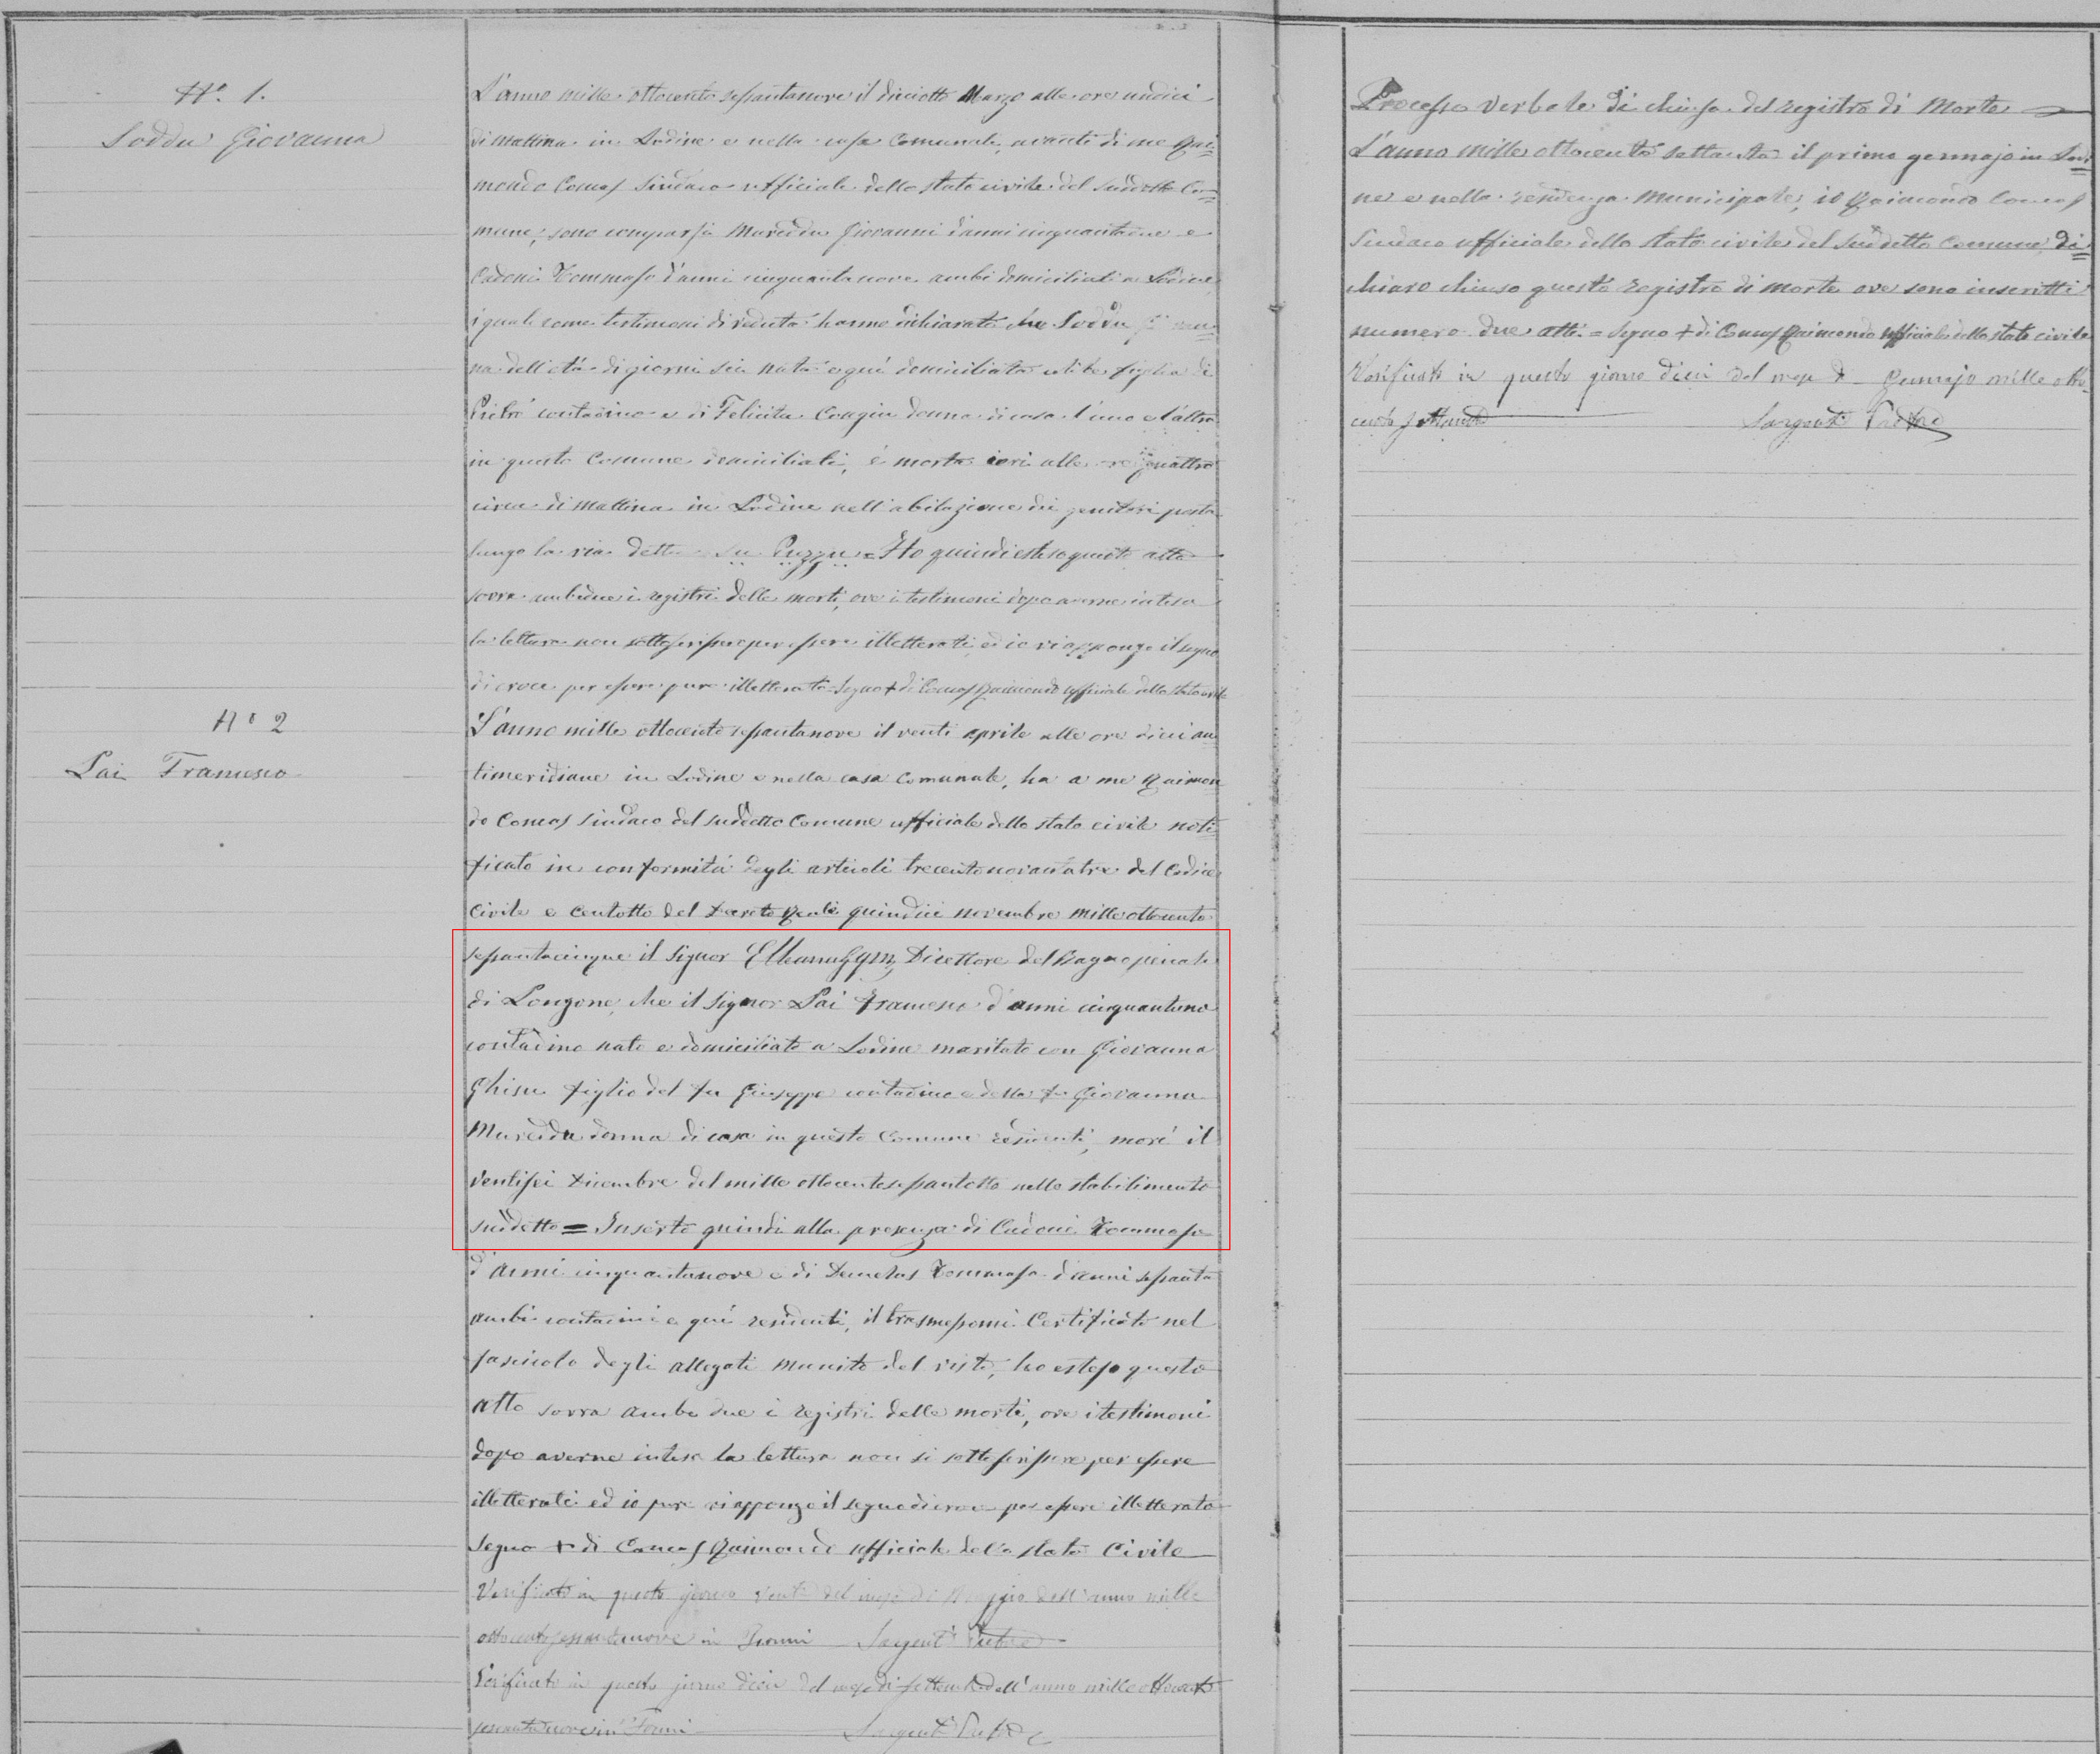 N.º 1.
Soddu Giovanna
L'anno mille ottocento sessantanove il diciotto Marzo alle ore undici
di mattina in Lodine e nella casa Comunale, avanti di me Rai=
mondo Comas Sindaco ufficiale dello stato civile del suddetto Co=
mune, sono comparsi Mureddu Giovanni d'anni cinquantadue e
Cadoni Tommaso d'anni cinquantanove ambi domiciliati a Lodine
i quali come testimoni di veduta hanno dichiarato che Soddu
na dell'età di giorni sei nata e qui domiciliata figlia di
Pietro contadino e di Felicita Congiu donna di casa l'uno e l'altra
in questo Comune domiciliati, è morta ieri alle ore quattro
circa di mattina in Lodine nell'abitazione dei genitori posta
lungo la via detta su Puzzu = Ho quindi esteso questo atto
sovra ambidue i registri delle morti, ove i testimoni dopo averne intesa
la lettura non sottoscrissero per essere illetterati ed io vi appongo il segno
di croce per essere pure illetterato Segno + di Comas Raimondo ufficiale dello stato civile
N.º 2
Lai Francesco
L'anno mille ottocento sessantanove il venti aprile alle ore dieci an
timeridiane in Lodine e nella casa Comunale, ha a me Raimon
do Comas Sindaco del suddetto Comune ufficiale dello stato civile noti
ficato in conformità degli articoli trecentonovantatre del Codice
Civile e centotto del Decreto Reale quindici novembre mille ottocento
sessantacinque il Signor Direttore del Bagno penale
di Longone, che il Signor Lai Francesco d'anni cinquantuno
contadino nato e domiciliato a Lodine maritato con Giovanna
Ghisu figlio del fu Giuseppe contadino e della fu Giovanna
Mureddu donna di casa in questo Comune residenti, morì il
ventisei Dicembre del mille ottocentosessantotto nello stabilimento
suddetto = Inserto quindi alla presenza di Cadoni Tommaso
d'anni cinquantanove e di Demelas Tommaso d'anni sessanta
ambi contadini e qui residenti, il trasmessomi Certificato nel
fascicolo degli allegati munito del visto, ho esteso questo
atto sovra ambi due i registri delle morti, ove i testimoni
dopo averne intesa la lettura non si sottoscrissero per essere
illetterati ed io pure vi appongo il segno di croce per essere illetterato
Segno + di Comas Raimondo ufficiale dello stato Civile
Verificato in questo giorno venti del mese di Maggio dell'anno mille
ottocentosessantanove in Fonni
Verificato in questo giorno dieci del mese di settembre dell'anno mille ottocento
sessantanove in Fonni
Processo verbale di chiusa del registro di Morte
L'anno mille ottocento settanta il primo gennajo in Lodi
ne e nella residenza Municipale, io Raimondo Comas
Sindaco ufficiale dello stato civile del suddetto Comune di
chiaro chiuso questo registro di morte ove sono inscritti
numero due atti = Segno + di Comas Raimondo ufficiale dello stato civile
Verificato in questo giorno dieci del mese di Gennajo mille otto
cento settanta